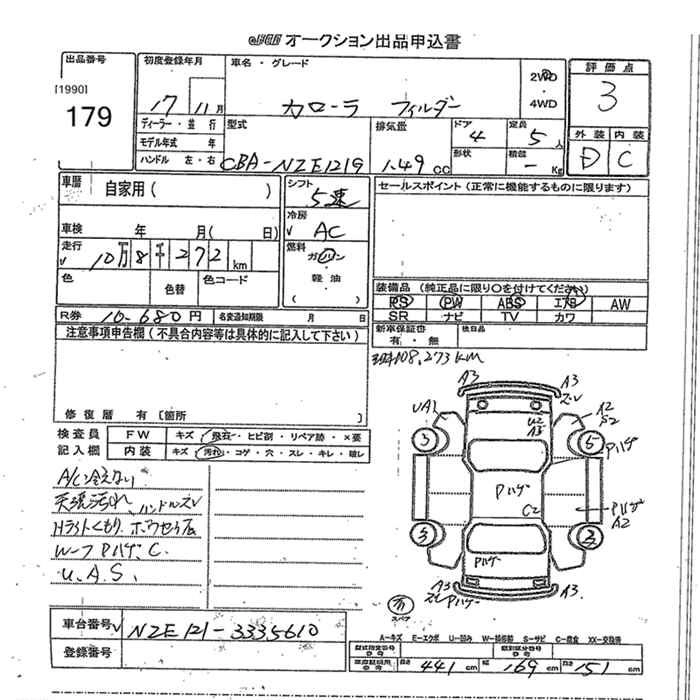 JCB オークション出品申込書
出品番号
[1990]
179
初度登録年月
17 11月
車名・グレード
カローラ フィルダー
2WD
4WD
評価点
3
外装 内装
D C
ディーラー・並行
モデル年式 年
ハンドル 左・右
型式
CBA-NZE121G
排気量
1.49 cc
ドア
4
形状
定員
5人
積載
- Kg
車歴 自家用( )
シフト
5速
セールスポイント(正常に機能するものに限ります)
車検 年 月( 日)
冷房
AC
走行
10万8千272km
燃料
ガソリン
軽油
( )
色 色替 色コード
装備品(純正品に限り○を付けてください)
PS PW ABS エアB AW
SR ナビ TV カワ
R券 10-680円 名変通知期限 月 日
新車保証書
有・無
後日品
注意事項申告欄(不具合内容等は具体的に記入して下さい)
108,273km
修復歴 有〔箇所 〕
検査員
記入欄
FW キズ・飛石・ヒビ割・リペア跡・×要
内装 キズ・汚れ・コゲ・穴・スレ・キレ・破レ
A/C冷えない
天張汚れ ハンドルスレ
Hライトくもり
ルーフPハゲ C.
U.A.S.
A3 A3
UA1 A2
S2
U2
A3
3 5
Pハゲ
Pハゲ
C2
Pハゲ
A2
3 3
Pハゲ
A3 Pハゲ A3
有
スペア
車台番号 NZE121-3335610
登録番号
A-キズ E-エクボ U-凹み W-補修跡 S-サビ C-腐食 XX-交換済
型式指定番号 類別区分番号
車庫証明用 長さ 441cm 幅 169cm 高さ 151cm